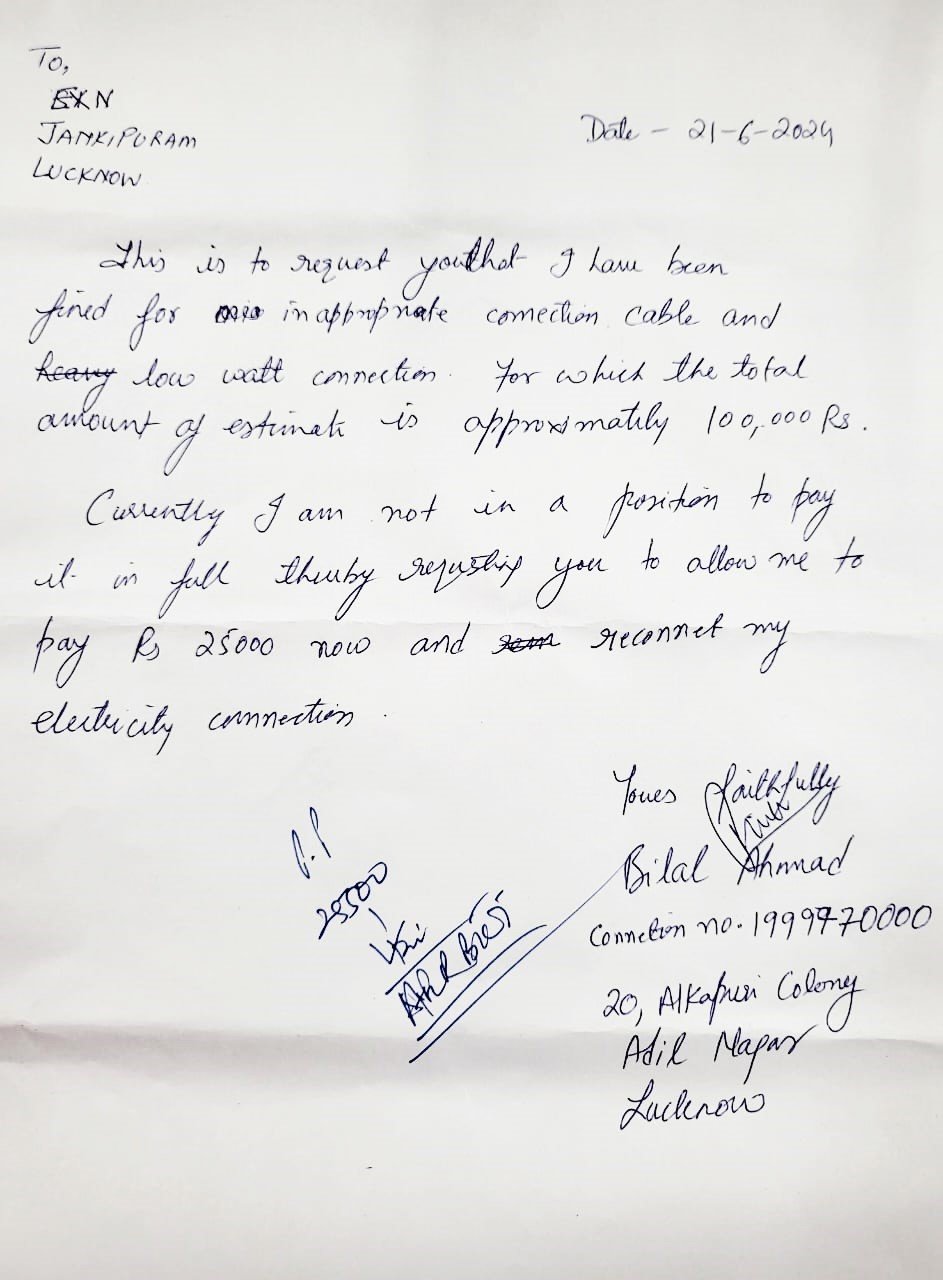 To,
EXN
JANKIPURAM
LUCKNOW
Date - 21-6-2024
This is to request you that I have been
fined for inappropriate connection cable and
heavy low watt connection. For which the total
amount of estimate is approximately 100,000 Rs.
Currently I am not in a position to pay
it in full thereby requesting you to allow me to
pay Rs 25000 now and reconnet my
electricity connection.
Yours faithfully
Bilal Ahmad
Connection no. 1999770000
20, Alkapuri Colony
Adil Nagar
Lucknow
25500